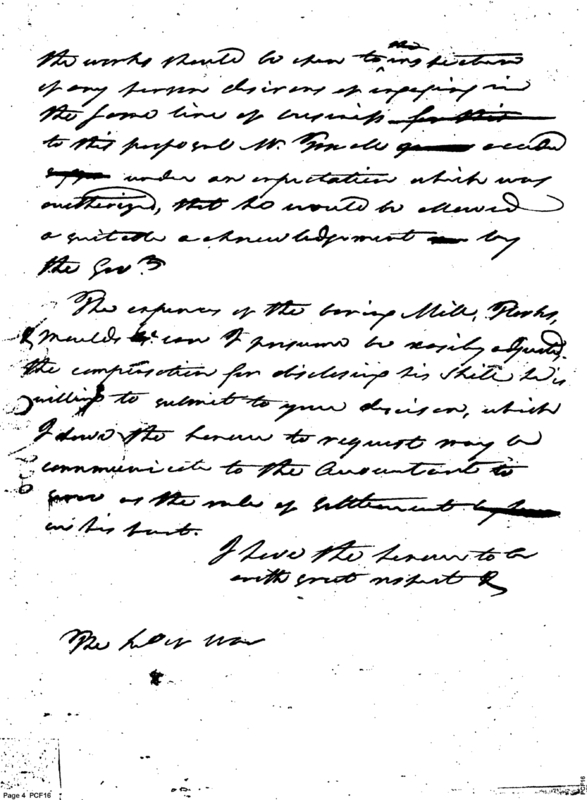 the works should be open to the inspection
of any person desirous of engaging in
the same line of business for this
to this proposal Mr. acceded
under an expectation which was
authorized, that he would be allowed
a suitable acknowledgement by
the Govt
The expences of the boring Mill, Flasks,
Moulds &c can I presume be easily adjusted.
the compensation for disclosing his skill he is
willing to submit to your decison, which
I have the honour to request may be
communicate to the Accountant to
serve as the rule of settlement
on his part.
I have the honour to be
with great respect &
The Secy of War
Page 4 PCF16
PCF16